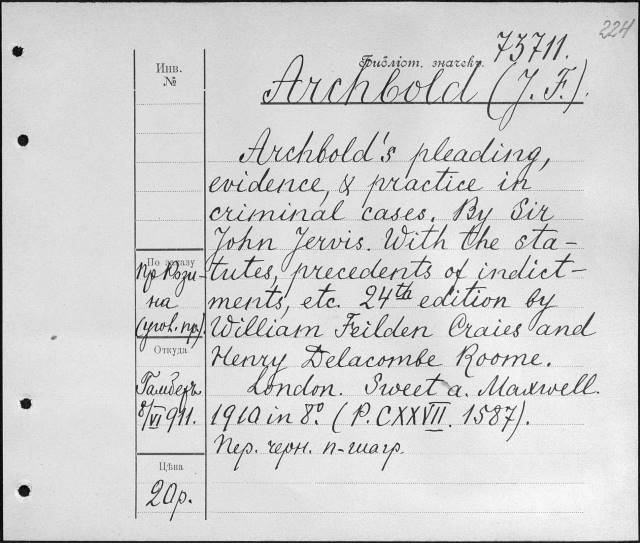 224
73711.
Библіот. значекъ.
Archbold (J. F.).
Инв.
№
Archbold's pleading,
evidence, & practice in
criminal cases. By Sir
John Jervis. With the sta-
tutes, precedents of indict-
ments, etc. 24th edition by
William Feilden Craies and
Henry Delacombe Roome.
London. Sweet a. Maxwell.
1910 in 8°. (P. CXXVII. 1587).
Пер. черн. п-шагр.
По заказу
пр.
на
(угол. пр.)
Откуда
Гамберъ
8/VI 911.
Цѣна
20р.